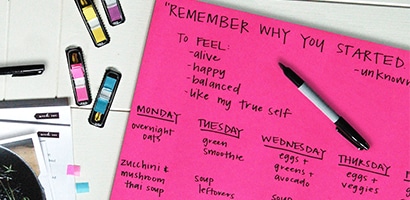 "REMEMBER WHY YOU STARTED
-unknown
TO FEEL:
-alive
-happy
-balanced
-like my true self
MONDAY
overnight
oats
zucchini &
mushroom
thai soup
TUESDAY
green
smoothie
soup
leftovers
WEDNESDAY
eggs +
greens +
avocado
soup
THURSDAY
eggs +
veggies